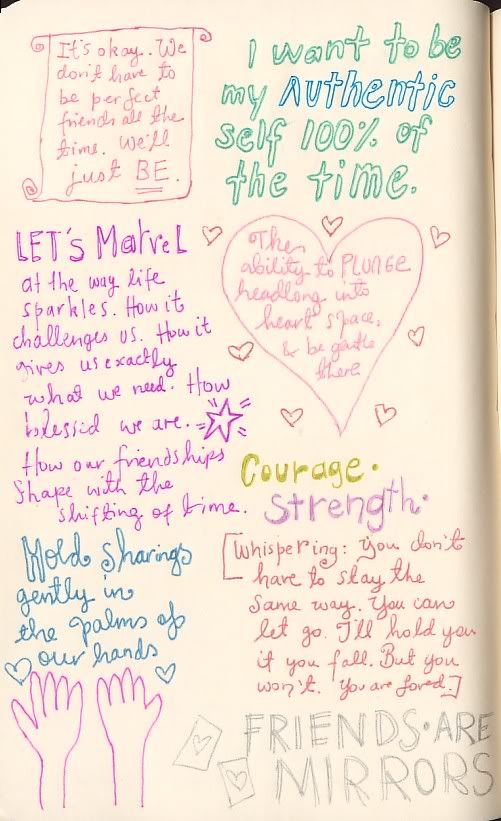 It's okay. We
don't have to
be perfect
friends all the
time. We'll
just BE.
I want to be
my Authentic
self 100% of
the time.
LET'S MarveL
at the way life
sparkles. How it
challenges us. How it
gives us exactly
what we need. How
blessid we are.
How our friendships
Shape with the
shifting of time.
The
ability to PLUNGE
headlong into
heart space,
& be gentle
there
Courage.
Strength.
Hold sharings
gently in
the palms of
our hands
[Whispering: You don't
have to stay the
same way. You can
let go. I'll hold you
if you fall. But you
won't. You are loved.]
FRIENDS·ARE
MIRRORS